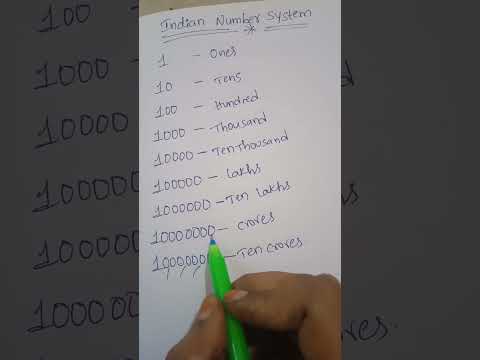 Indian Number System
1 - Ones
10 - Tens
100 - Hundred
1000 - Thousand
10000 - Ten Thousand
100000 - Lakhs
1000000 - Ten Lakhs
10000000 - Crores
- Ten Crores